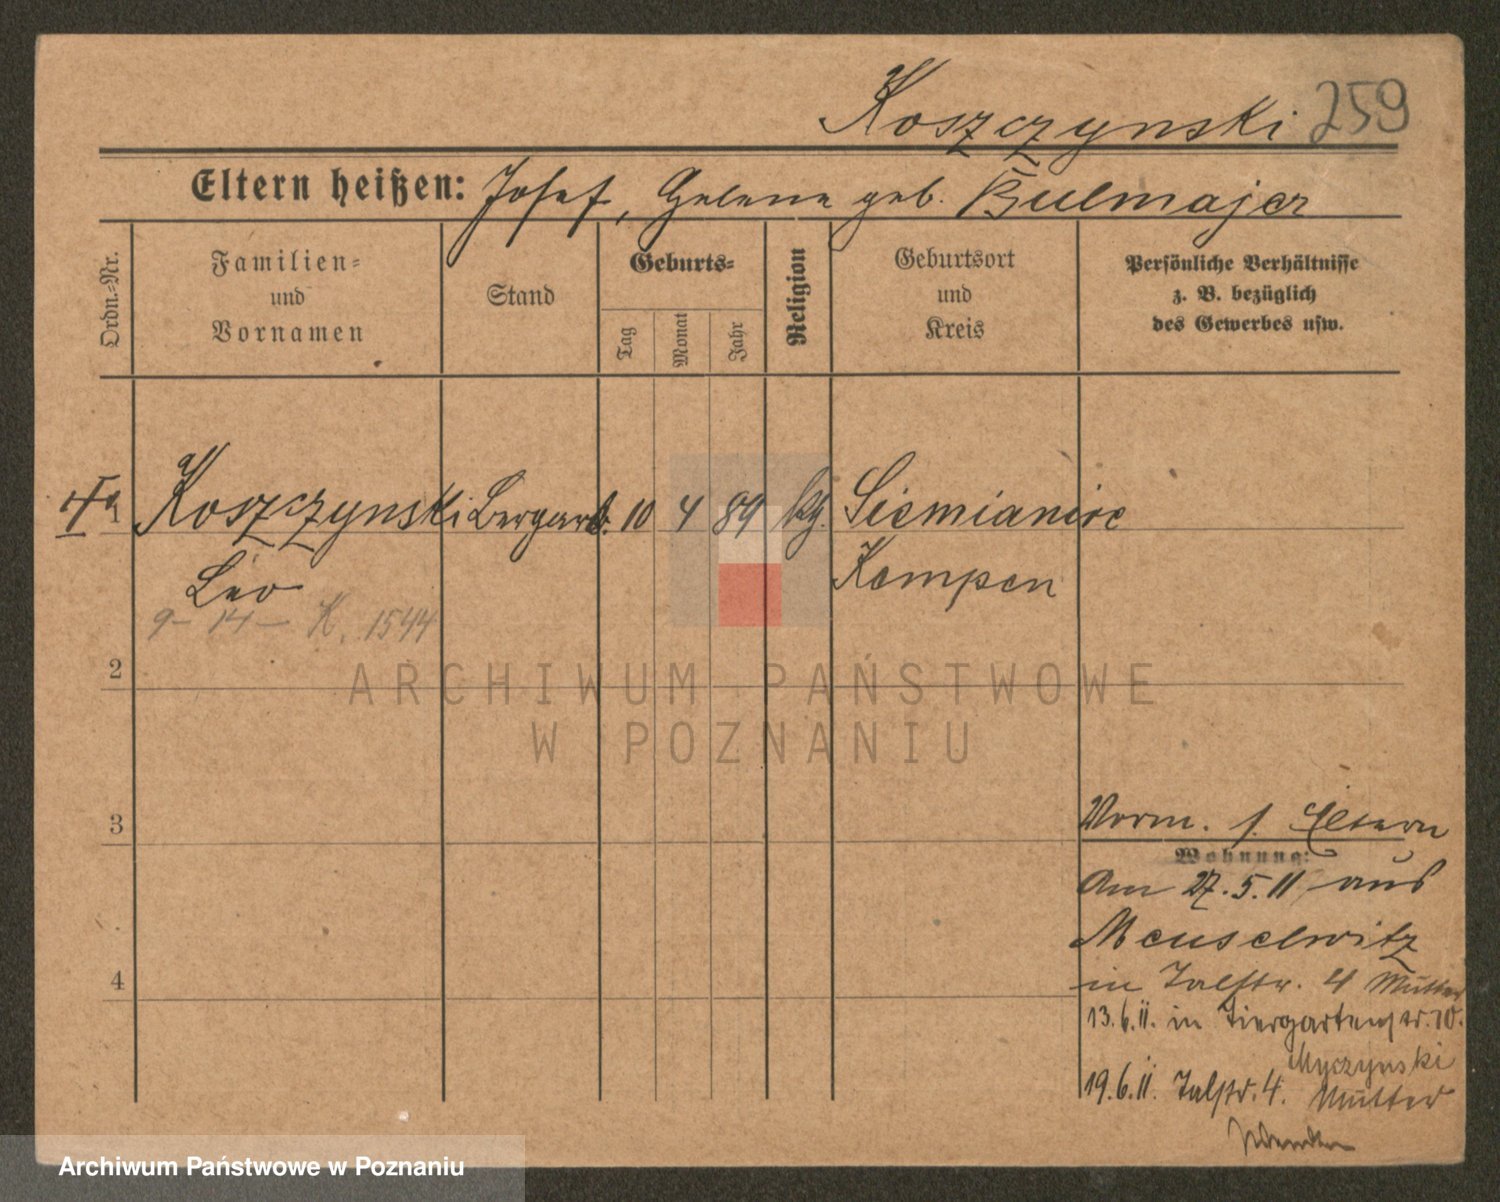 Koszczynski 259
Eltern heißen: Josef, Helene geb. Bulmajer
Ordn.-Nr.
Familien-
und
Vornamen
Stand
Geburts-
Tag
Monat
Jahr
Religion
Geburtsort
und
Kreis
Persönliche Verhältnisse
z. B. bezüglich
des Gewerbes usw.
1 Koszczynski Bergarb. 10 4 89 kg. Siemianice
Leo Kempen
9- 14- K. 1544
2
ARCHIWUM PAŃSTWOWE
W POZNANIU
3
Vorm. s. Eltern
Wohnung:
Am 27.5.11 aus
Meuselwitz
4
in Talstr. 4 Mutter
13.6.11. in Tiergartenstr. 10.
Myczynski
19.6.11. Talstr. 4. Mutter
Wenden
Archiwum Państwowe w Poznaniu